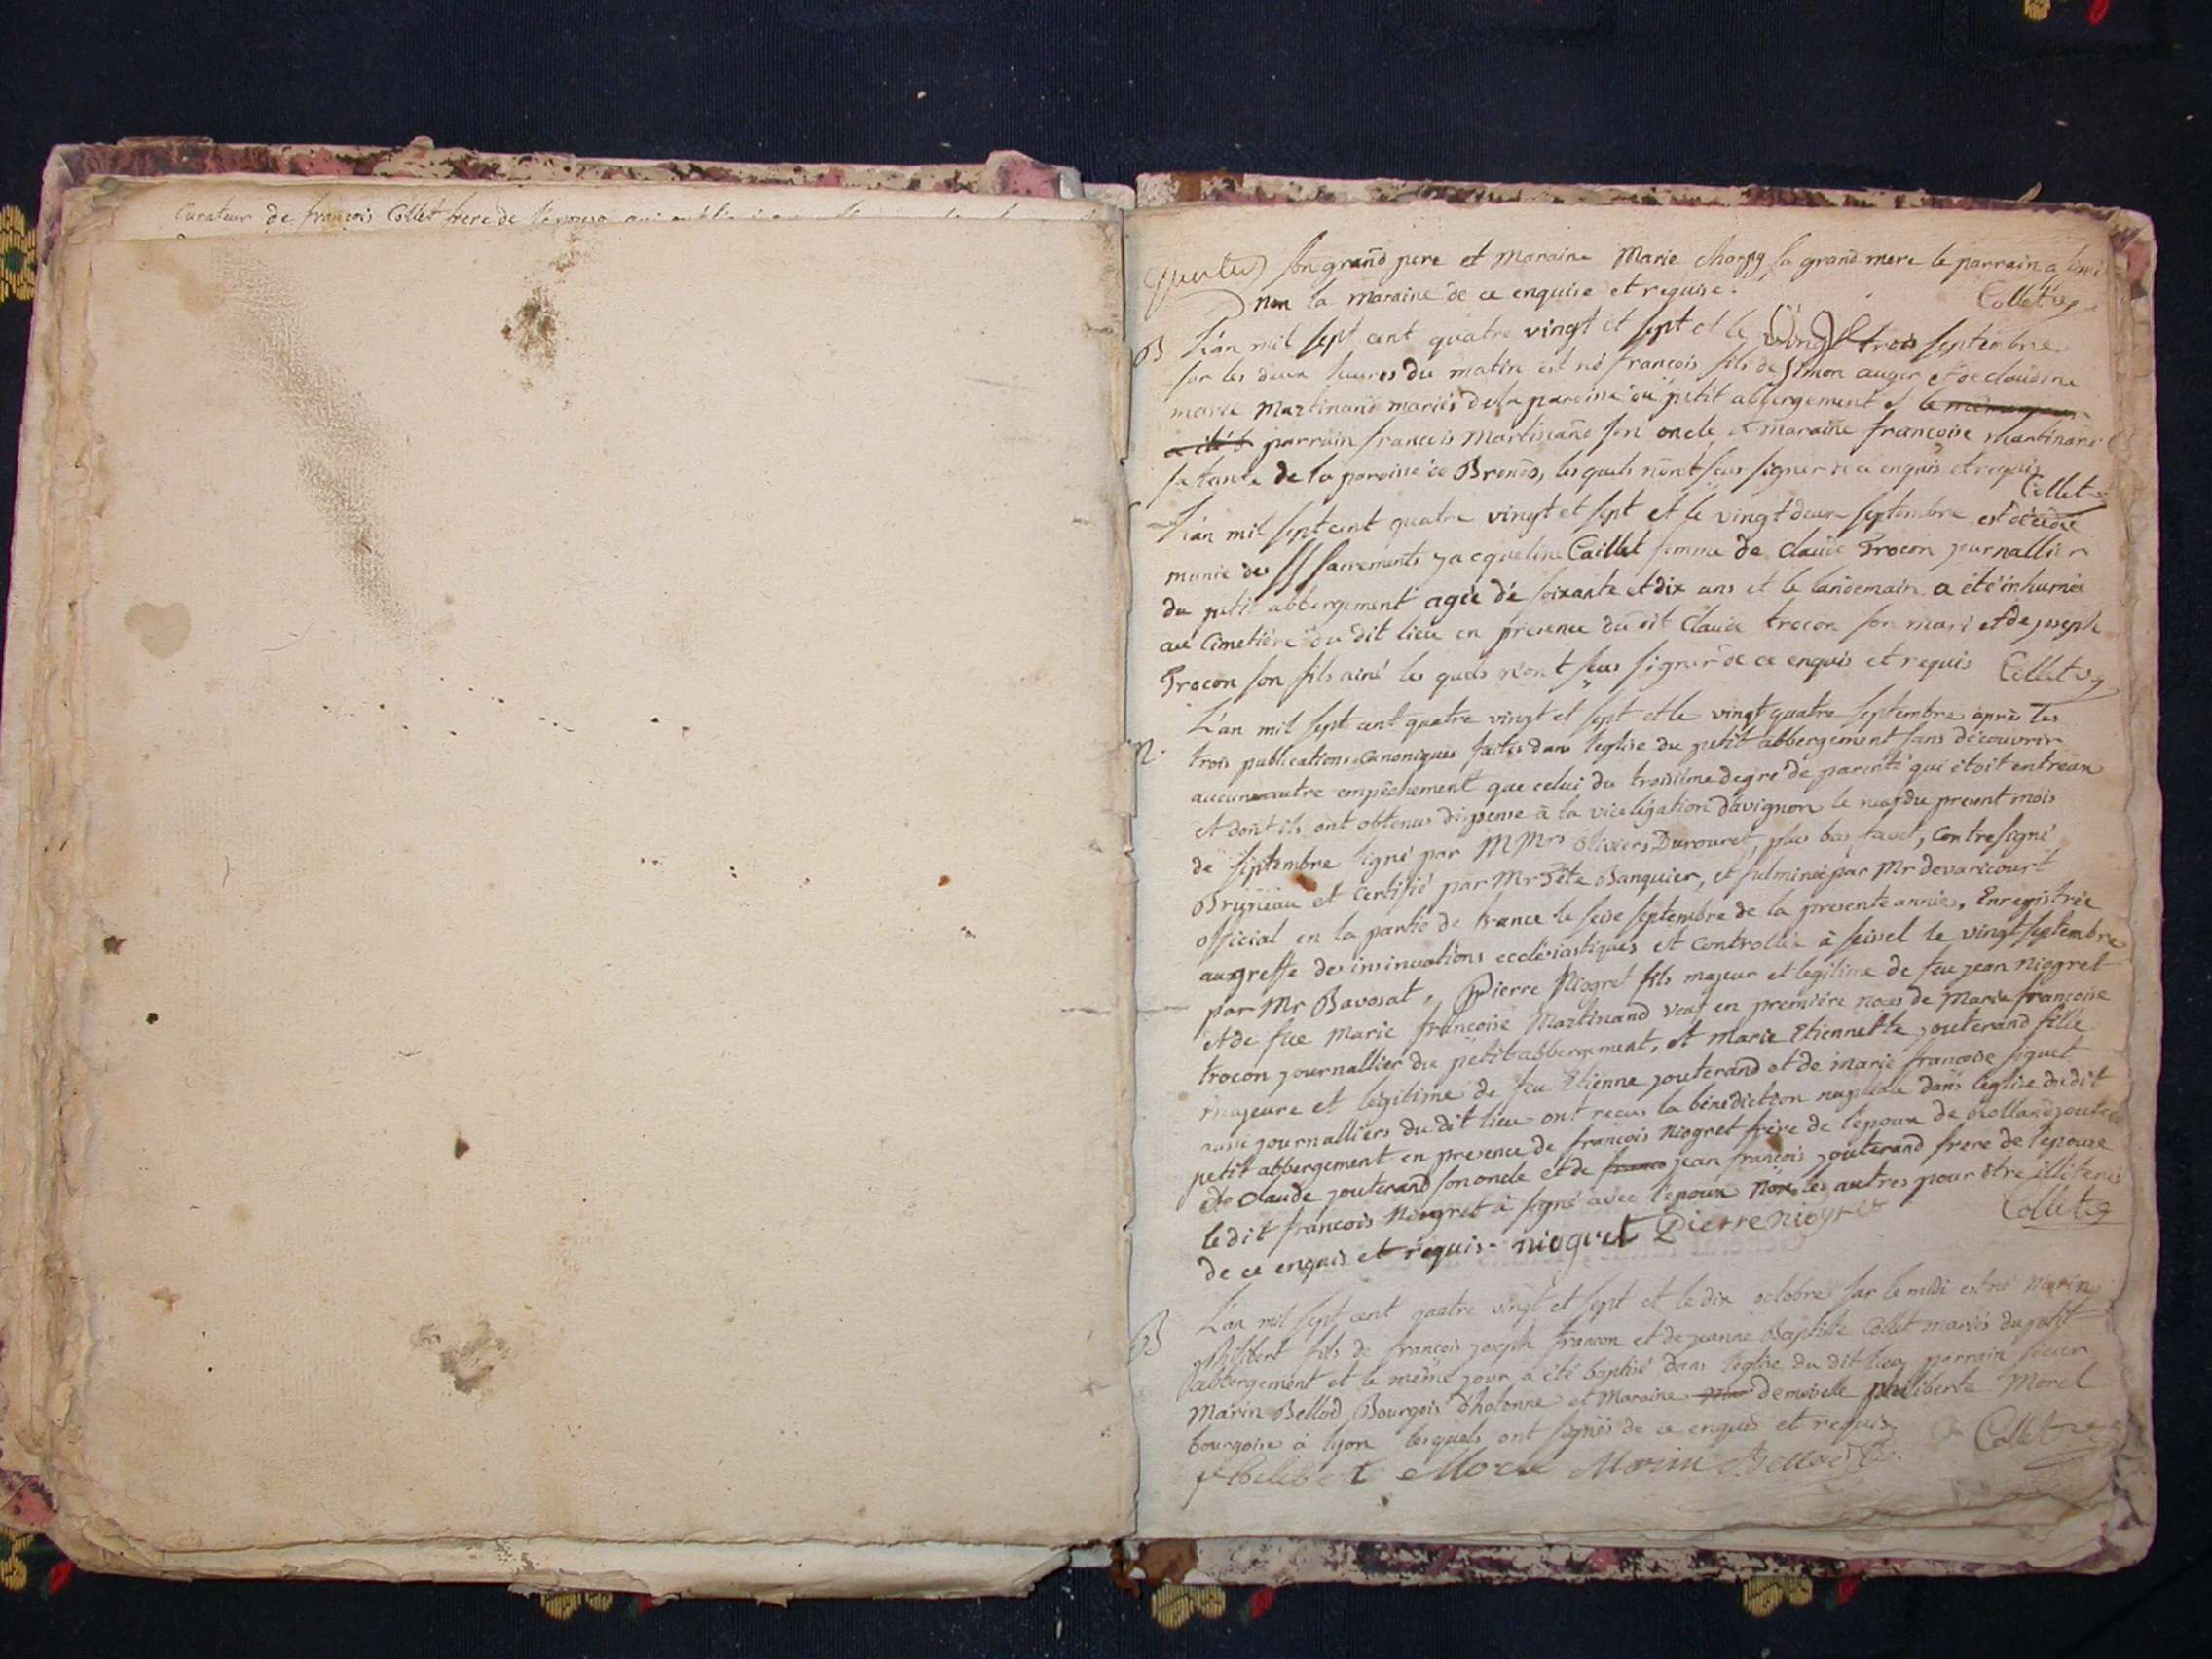 Curateur de françois Collet frere de
son grand pere et Maraine Marie Charpy sa grand mere le parrain a signé
non la maraine de ce enquise et requise.
Collet
B L'an mil sept cent quatre vingt et sept et le vingt trois septembre
sur les deux heures du matin est né françois fils de Simon auger et de claudine
marie Martinand mariés de la paroisse du petit abbergement et le même jour
a été parrain francois Martinand son oncle et maraine francoise Martinand
sa tante de la paroisse de Brenod, les quels n'ont seus signer de ce enquis et requis
Collet
L'an mil sept cent quatre vingt et sept et le vingt deux septembre est décédée
munie des SS sacrements jacqueline Caillet femme de claude Trocon journallier
du petit abbergement agée dé soixante et dix ans et le landemain a été inhumée
au Cimetière du dit lieu en presence du dit Claude trocon son mari et de joseph
Trocon son fils ainé les quels n'ont seus signer de ce enquis et requis Collet
L'an mil sept cent quatre vingt et sept et le vingt quatre septembre après les
trois publications Canoniques faites dans l'eglise du petit abbergement sans découvrir
aucun autre empêchement que celui du troisiéme degré de parenté qui étoit entreux
et dont ils ont obtenus dispense à la vicelégation d'avignon le neuf du present mois
de septembre signé par MMrs oliviers Durouret, plus bas favet, Contresigné
Bruneau et Certifié par Mr Tête Banquier, et fulminée par Mr devaricourt
official en la partie de france le seise septembre de la presente année, Enregistrée
au greffe des insinuations ecclésiastiques et Controllée à seissel le vingt septembre
par Mr Bavosat, Pierre Niogret fils majeur et legitime de feu jean niogret
et de fue Marie françoise Martinand veuf en premiére noces de Marie françoise
trocon journallier du petit abbergement, et marie Etiennette jouterand fille
majeure et légitime de feu Etienne jouterand et de marie francoise
aussi journalliers du dit lieu ont recus la bénédiction nuptiale dans l'eglise dudit
petit abbergement en presence de françois Niogret frère de l'epoux de Rolland
et de Claude jouterand son oncle et de jean françois jouterand frere de l'epouse
le dit francois Niogret à signé avec l'epoux non les autres pour être illiterés
de ce enquis et requis. niogret Pierre niogret Collet
B L'an mil sept cent quatre vingt et sept et le dix octobre sur le midi est né Marin
philibert fils de françois joseph francon et de jeanne Baptiste Collet mariés du petit
abbergement et le même jour a été baptisé dans l'eglise du dit lieu parrain sieur
Marin Bellod Bourgois d'hotonne et Maraine demoiselle philiberte Morel
bourgoise à lyon lesquels ont signés de ce enquis et requis
Collet
Marin Bellod